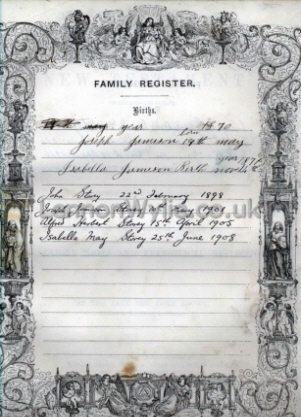 FAMILY REGISTER.
Births.
may year 1870
Joseph Jameson born 19th may
Isabella Jameson Birth nov
year 1870
John Storey 22nd February 1898
Storey may 1901
Alfred Herbert Storey 15th April 1905
Isabella May Storey 25th June 1908